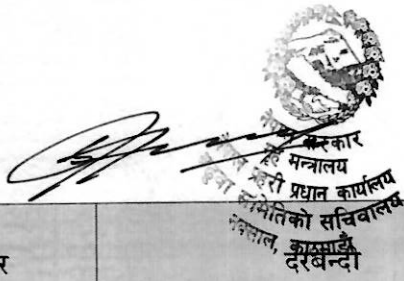 नेपाल सरकार
गृह मन्त्रालय
नेपाल प्रहरी प्रधान कार्यालय
समितिको सचिवालय
नक्साल, काठमाडौँ
दरबन्दी
र